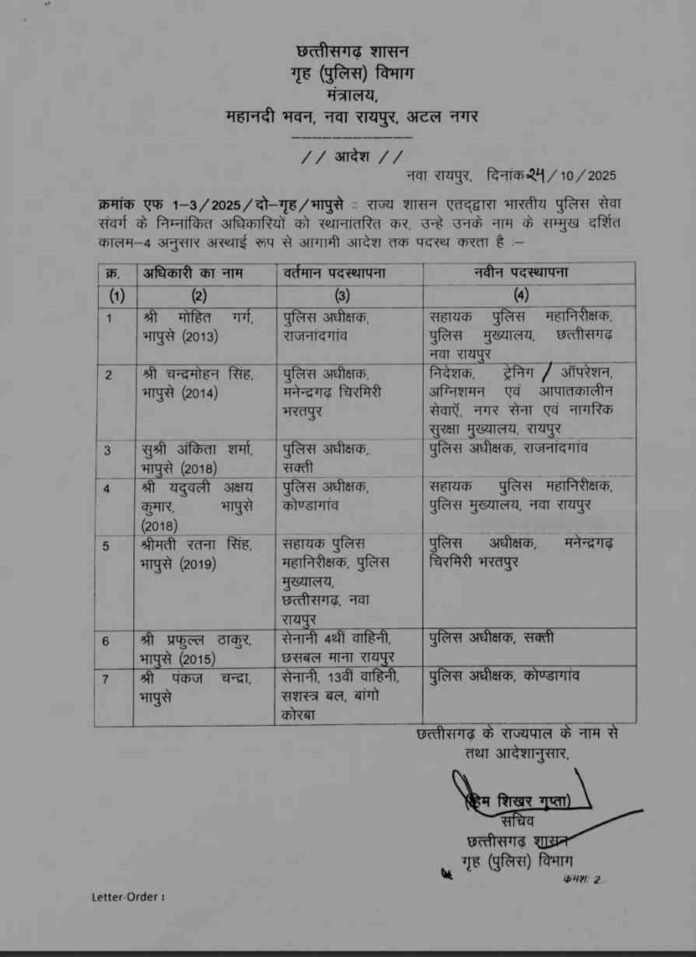 छत्तीसगढ़ शासन
गृह (पुलिस) विभाग
मंत्रालय,
महानदी भवन, नवा रायपुर, अटल नगर
// आदेश //
नवा रायपुर, दिनांक 24/10/2025
क्रमांक एफ 1-3/2025/दो-गृह/भापुसे :: राज्य शासन एतद्द्वारा भारतीय पुलिस सेवा
संवर्ग के निम्नांकित अधिकारियों को स्थानांतरित कर, उन्हे उनके नाम के सम्मुख दर्शित
कालम-4 अनुसार अस्थाई रूप से आगामी आदेश तक पदस्थ करता है :-
क्र. अधिकारी का नाम वर्तमान पदस्थापना नवीन पदस्थापना
(1) (2) (3) (4)
1 श्री मोहित गर्ग, पुलिस अधीक्षक, सहायक पुलिस महानिरीक्षक,
भापुसे (2013) राजनांदगांव पुलिस मुख्यालय, छत्तीसगढ़
नवा रायपुर
2 श्री चन्द्रमोहन सिंह, पुलिस अधीक्षक, निदेशक, ट्रेनिंग / ऑपरेशन,
भापुसे (2014) मनेन्द्रगढ़ चिरमिरी अग्निशमन एवं आपातकालीन
भरतपुर सेवाऍं, नगर सेना एवं नागरिक
सुरक्षा मुख्यालय, रायपुर
3 सुश्री अंकिता शर्मा, पुलिस अधीक्षक, पुलिस अधीक्षक, राजनांदगांव
भापुसे (2018) सक्ती
4 श्री यदुवली अक्षय पुलिस अधीक्षक, सहायक पुलिस महानिरीक्षक,
कुमार, भापुसे कोण्डागांव पुलिस मुख्यालय, नवा रायपुर
(2018)
5 श्रीमती रतना सिंह, सहायक पुलिस पुलिस अधीक्षक, मनेन्द्रगढ़
भापुसे (2019) महानिरीक्षक, पुलिस चिरमिरी भरतपुर
मुख्यालय,
छत्तीसगढ़, नवा
रायपुर
6 श्री प्रफुल्ल ठाकुर, सेनानी 4थीं वाहिनी, पुलिस अधीक्षक, सक्ती
भापुसे (2015) छसबल माना रायपुर
7 श्री पंकज चन्द्रा, सेनानी, 13वीं वाहिनी, पुलिस अधीक्षक, कोण्डागांव
भापुसे सशस्त्र बल, बांगो
कोरबा
छत्तीसगढ़ के राज्यपाल के नाम से
तथा आदेशानुसार,
(हिम शिखर गुप्ता)
सचिव
छत्तीसगढ़ शासन
गृह (पुलिस) विभाग
क्रमशः 2
Letter-Order :